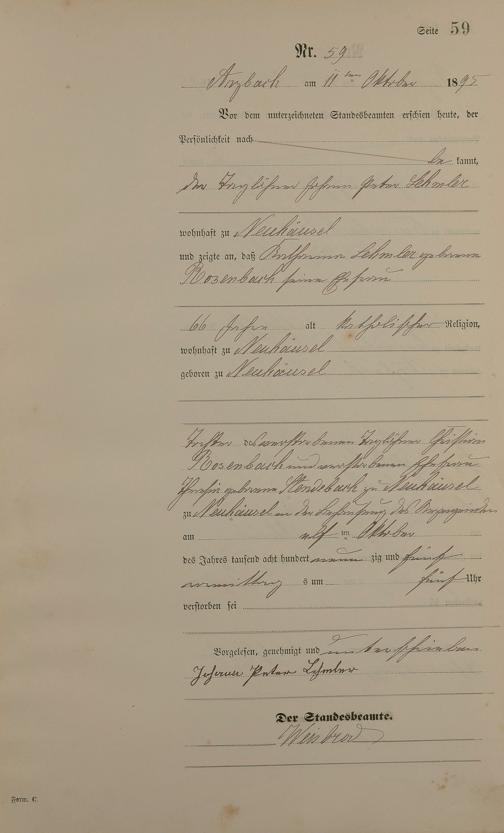 Seite 59
Nr. 59
Arzbach am 11ten Oktober 1895
Vor dem unterzeichneten Standesbeamten erschien heute, der
Persönlichkeit nach
be kannt,
der Taglöhner Johann Peter Lehmler
wohnhaft zu Neuhäusel
und zeigte an, daß Katharina Lehmler geborene
Rosenbach seine Ehefrau
66 Jahre alt katholischer Religion,
wohnhaft zu Neuhäusel
geboren zu Neuhäusel
Tochter des verstorbenen Taglöhner Christian
Rosenbach und verstorbenen Ehefrau
geborene zu Neuhäusel
zu Neuhäusel in der Behausung des Anzeigenden
am elf ten Oktober
des Jahres tausend acht hundert neun zig und fünf
vormittags um fünf Uhr
verstorben sei
Vorgelesen, genehmigt und unterschrieben
Johann Peter Lehmler
Der Standesbeamte.
Weisbrod
Form. C.